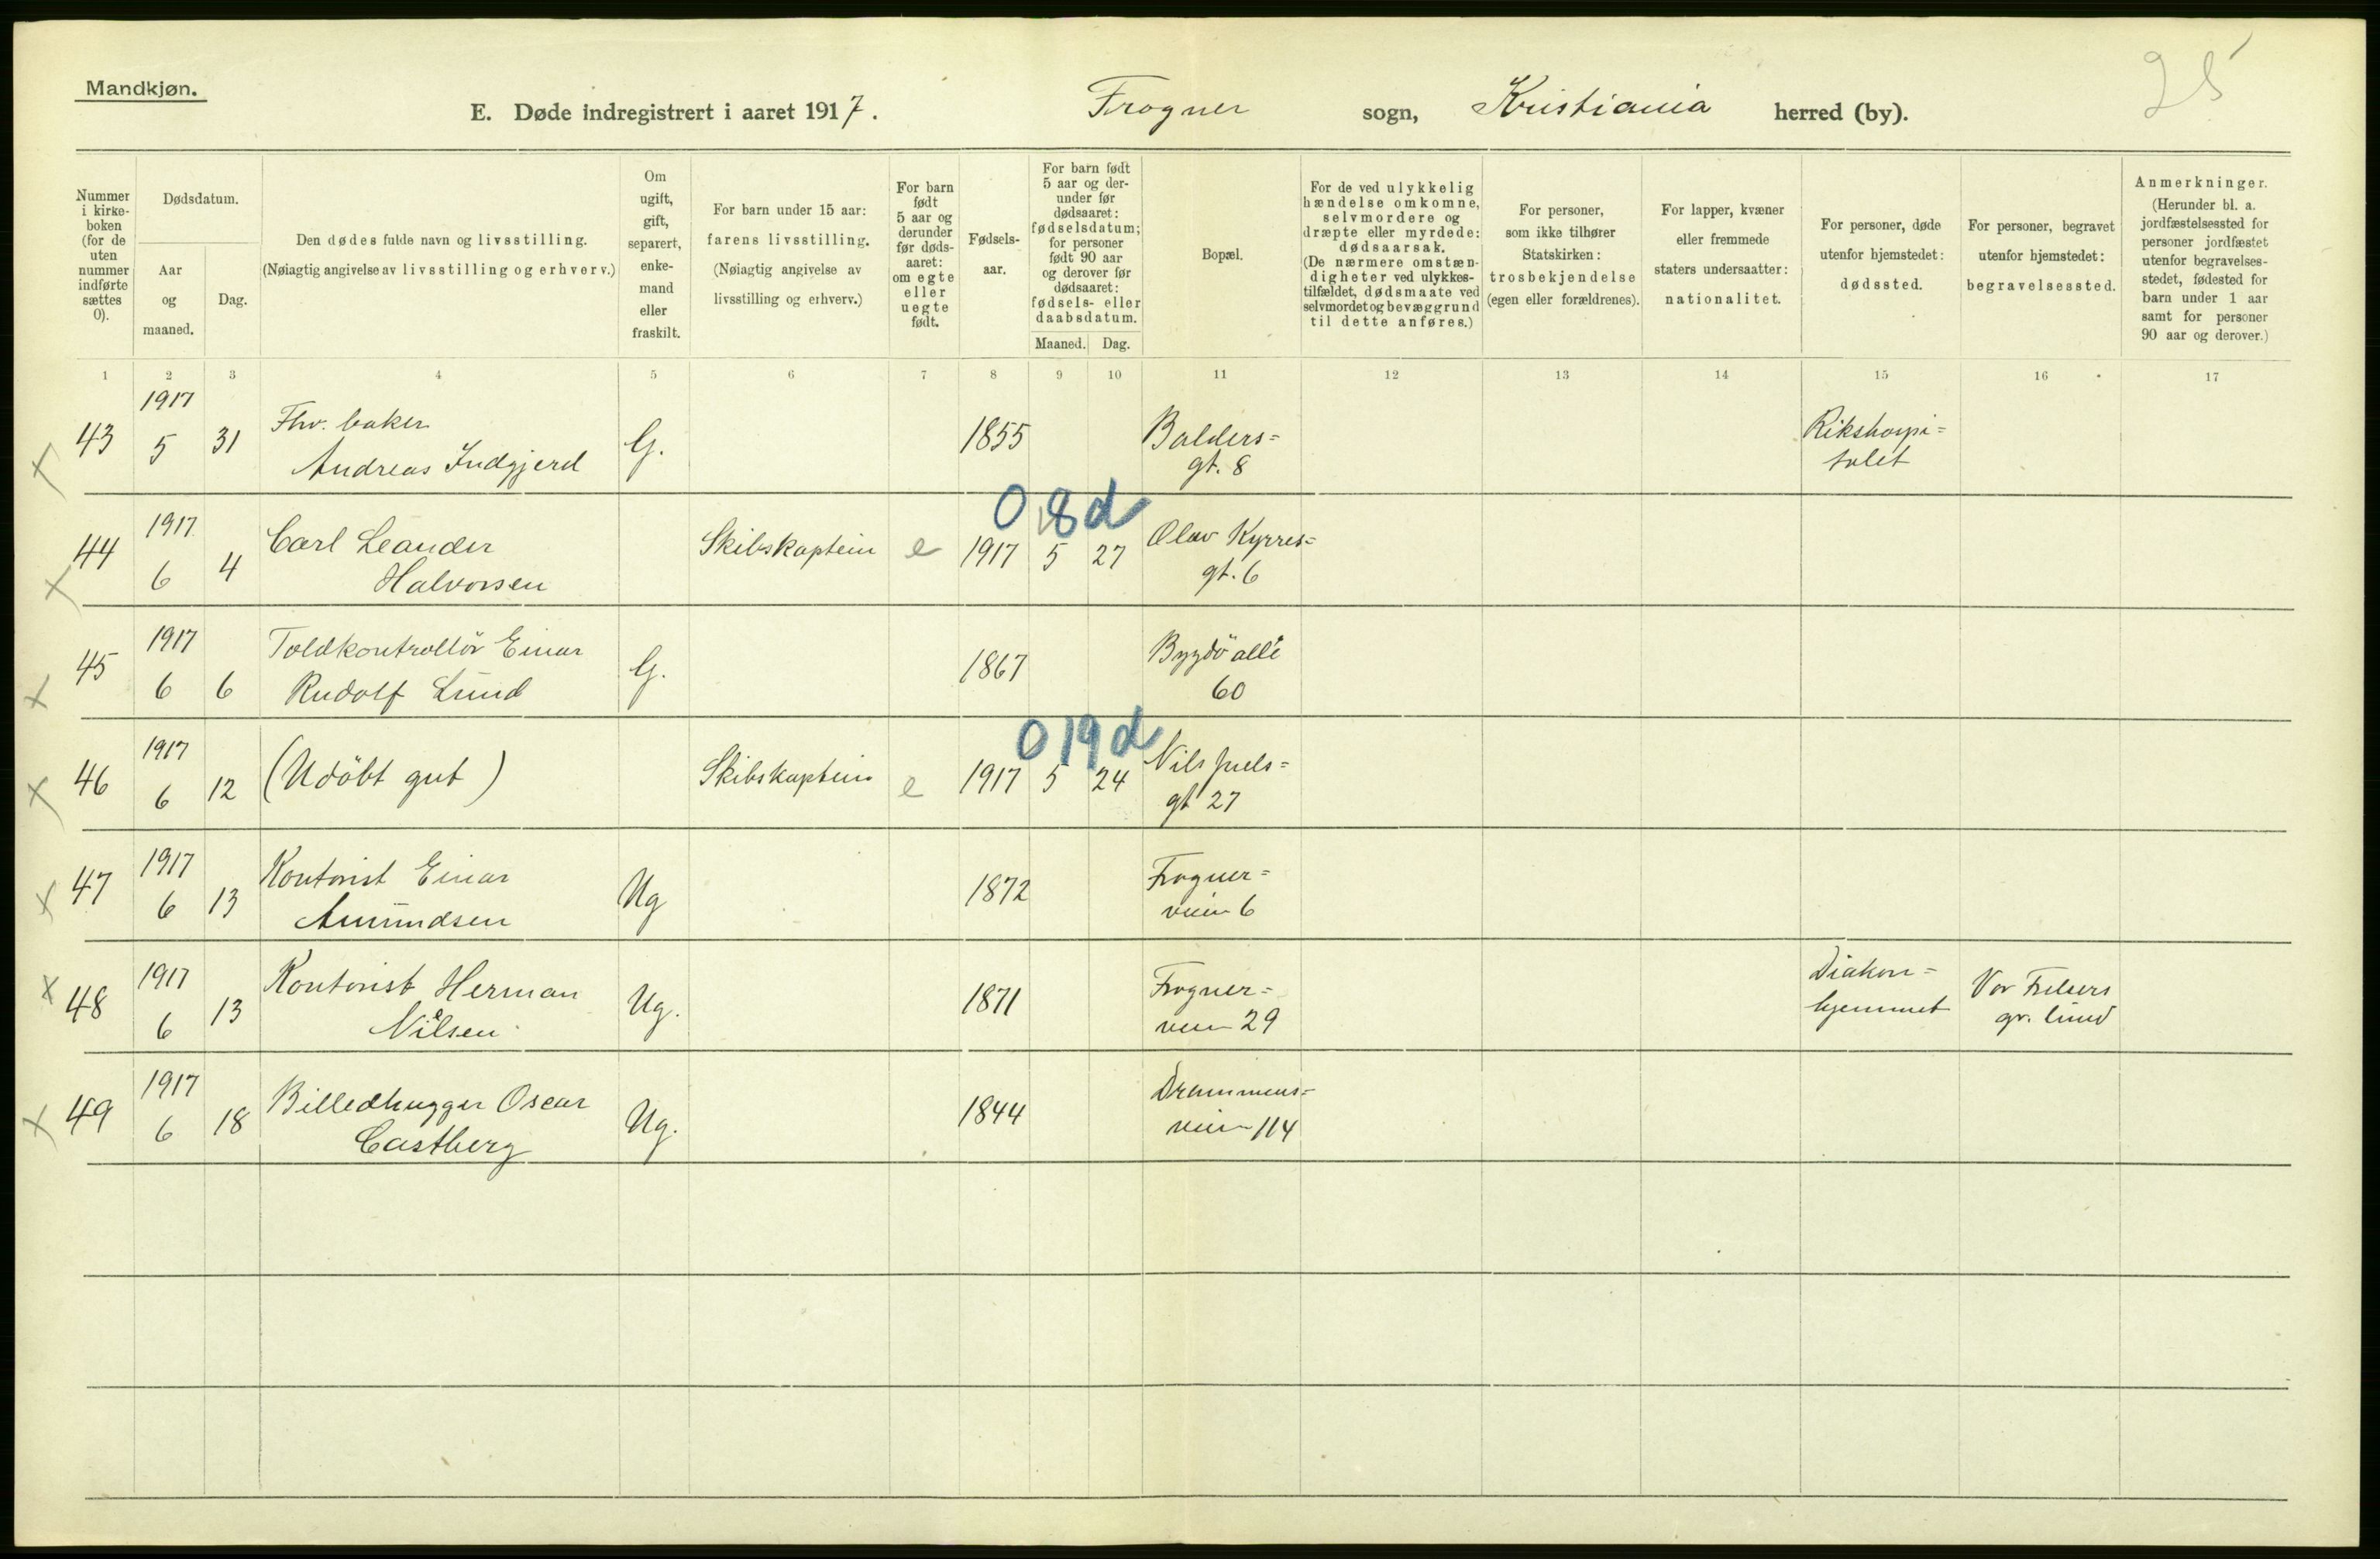 Mandkjøn.
25
E. Døde indregistrert i aaret 1917. Frogner sogn, Kristiania herred (by).
Nummer i kirke- boken (for de uten nummer indførte sættes 0).
Dødsdatum.
Aar og maaned.
Dag.
Den dødes fulde navn og livsstilling.
(Nøiagtig angivelse av livsstilling og erhverv.)
Om ugift, gift, separert, enke- mand eller fraskilt.
For barn under 15 aar:
farens livsstilling.
(Nøiagtig angivelse av
livsstilling og erhverv.)
For barn født 5 aar og derunder før døds- aaret: om egte eller uegte født.
Fødsels- aar.
For barn født 5 aar og der- under før dødsaaret: fødselsdatum; for personer født 90 aar og derover før dødsaaret: fødsels- eller daabsdatum.
Maaned. Dag.
Bopæl.
For de ved ulykkelig hændelse omkomne, selvmordere og dræpte eller myrdede: dødsaarsak. (De nærmere omstæn- digheter ved ulykkes- tilfældet, dødsmaate ved selvmordet og bevæggrund til dette anføres.)
For personer, som ikke tilhører Statskirken: trosbekjendelse (egen eller forældrenes).
For lapper, kvæner eller fremmede staters undersaatter: nationalitet.
For personer, døde utenfor hjemstedet: dødssted.
For personer, begravet utenfor hjemstedet: begravelsessted.
Anmerkninger. (Herunder bl. a. jordfæstelsessted for personer jordfæstet utenfor begravelses- stedet, fødested for barn under 1 aar samt for personer 90 aar og derover.)
1 2 3 4 5 6 7 8 9 10 11 12 13 14 15 16 17
1917 Fhv. baker Balders= Rikshospi=
43 5 31 Andreas Indgjerd G. 1855 gt. 8 talet
0 8 d
1917 Carl Leander Olav Kyrres=
44 6 4 Halvorsen Skibskaptein e 1917 5 27 gt. 6
1917 Toldkontrollör Einar Bygdö allé
45 6 6 Rudolf Lund G. 1867 60
0 19 d
1917 Nils Juels=
46 6 12 (Udöbt gut) Skibskaptein e 1917 5 24 gt 27
1917 Kontorist Einar Frogner=
47 6 13 Amundsen Ug 1872 veien 6
1917 Kontorist Herman Frogner= Diakon= Vor Frelsers
48 6 13 Nielsen Ug. 1871 veien 29 hjemmet gr. lund
1917 Billedhugger Oscar Drammens=
49 6 18 Castberg Ug. 1844 veien 114